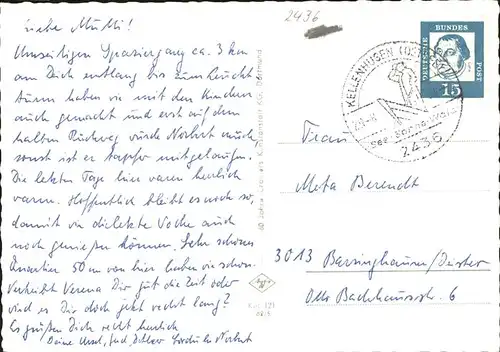 Liebe Mutti!
Unseeligen Spaziergang ca. 3 km
am Deich entlang bis zum
haben wir mit den Kindern
auch gemacht und erst auf dem
halben Rückweg wurde Norbert müde
sonst ist er tapfer mitgelaufen.
Die letzten Tage hier waren herrlich
warm. Hoffentlich bleibt es noch so,
damit wir die letzte Woche auch
noch genießen können. Sehr schönen
50 m von hier haben wir schon.
Verena Dir gut die Zeit oder
wird es Dir doch jetzt recht lang?
Es grüßen Dich recht herzlich
Deine Norbert
2436
KELLENHUSEN (OSTSEE)
2436
DEUTSCHE
BUNDES
POST
15
Frau
Meta Berendt
3013 Barsinghausen/Deister
Otto Bachhausstr. 6
60 Jahre Dortmund